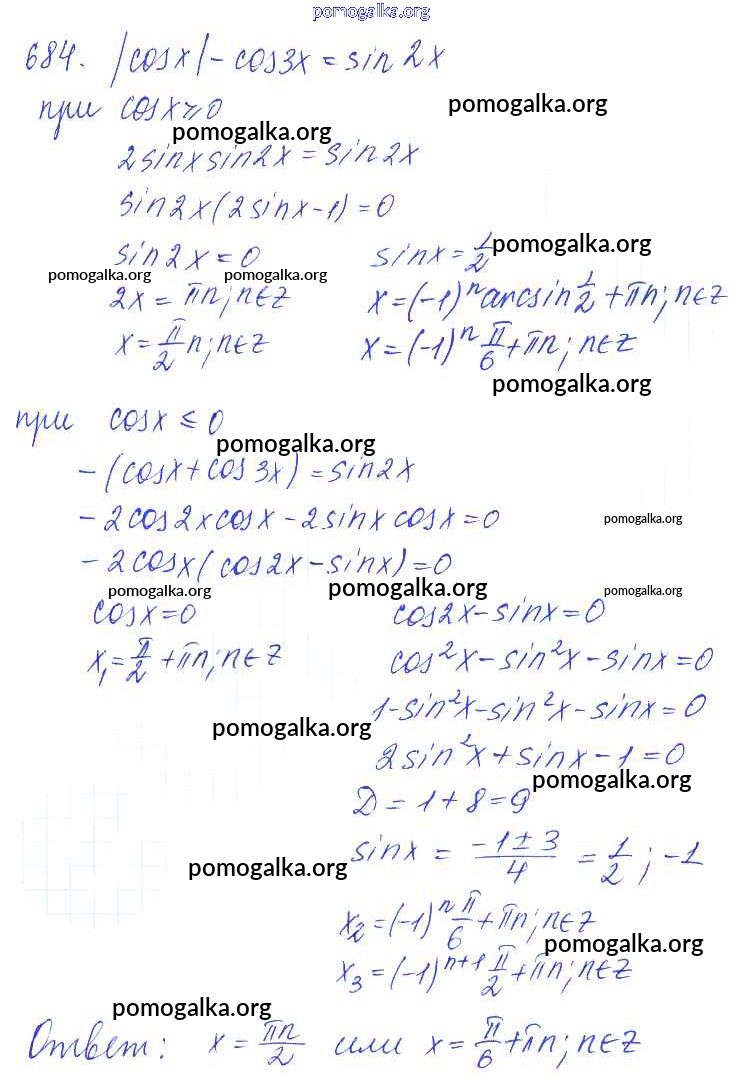 pomogalka.org
684. |cosx| - cos3x = sin 2x
при cosx ≥ 0 pomogalka.org
pomogalka.org
2sinx sin2x = sin2x
sin2x(2sinx-1) = 0
sin2x = 0 sinx = 1/2 pomogalka.org
pomogalka.org pomogalka.org
2x = πn; n∈Z x = (-1)^n arcsin 1/2 + πn; n∈Z
x = π/2 n; n∈Z x = (-1)^n π/6 + πn; n∈Z
pomogalka.org
при cosx ≤ 0
pomogalka.org
-(cosx + cos3x) = sin2x
-2cos2x cosx - 2sinx cosx = 0 pomogalka.org
-2cosx(cos2x - sinx) = 0
pomogalka.org pomogalka.org pomogalka.org
cosx = 0 cos2x - sinx = 0
x₁ = π/2 + πn; n∈Z cos²x - sin²x - sinx = 0
1 - sin²x - sin²x - sinx = 0
pomogalka.org
2sin²x + sinx - 1 = 0
pomogalka.org
D = 1 + 8 = 9
sinx = (-1 ± 3)/4 = 1/2; -1
pomogalka.org
x₂ = (-1)^n π/6 + πn; n∈Z
pomogalka.org
x₃ = (-1)^(n+1) π/2 + πn; n∈Z
pomogalka.org
Ответ: x = πn/2 или x = π/6 + πn; n∈Z